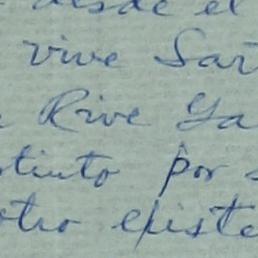 desde el
vive Sar
Rive Ya
stinto por
otro existe